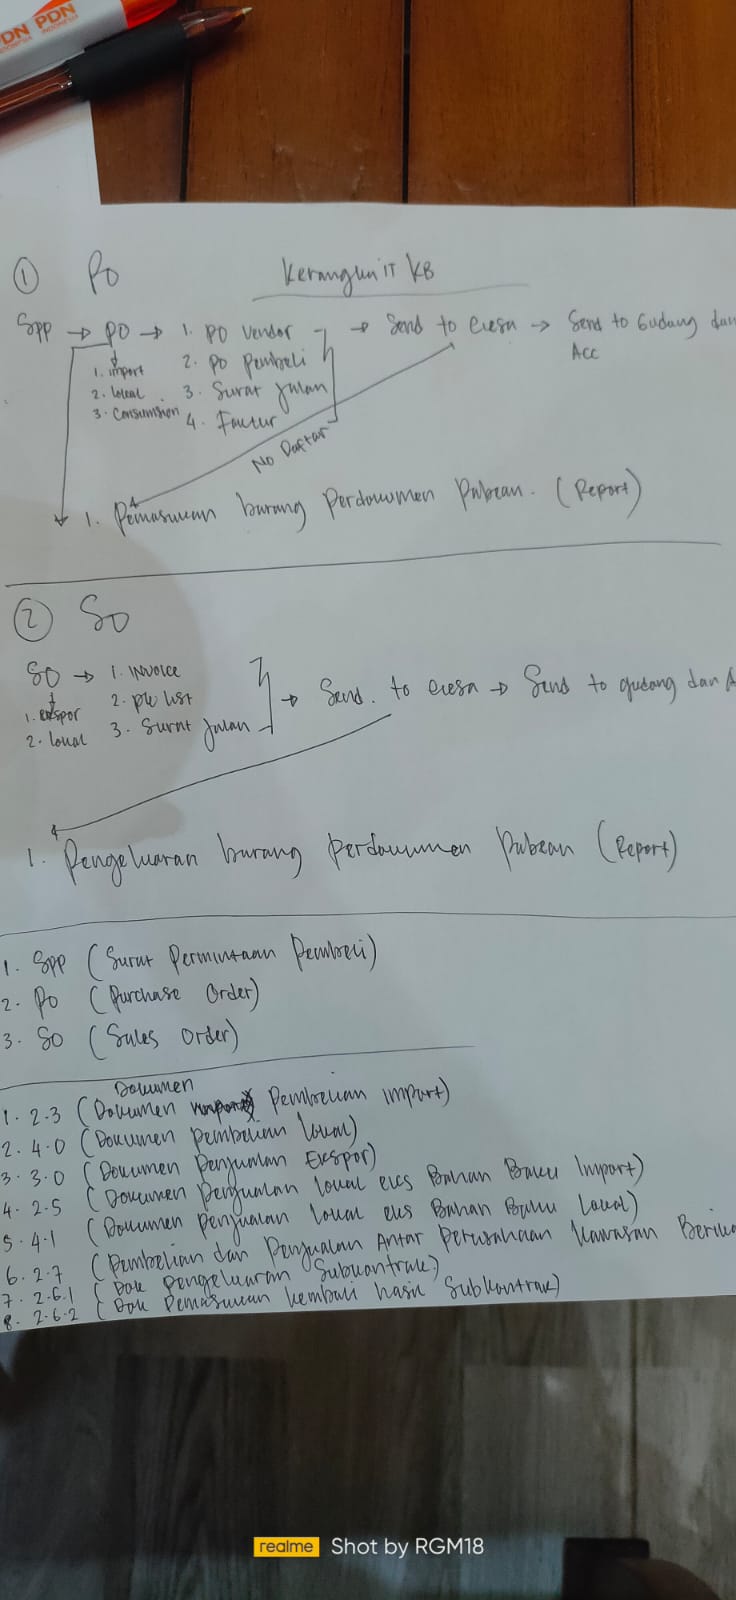 PDN PDN
INDONESIA
① PO Kerangka IT KB
Spp → PO → 1. PO Vendor → Send to Ceisa → Send to Gudang dan
1. import 2. PO Pembeli Acc
2. Lokal 3. Surat Jalan
3. Consumsion 4. Faktur
No Daftar
1. Pemasukan barang Perdokumen Pabean. (Report)
② SO
SO → 1. INVOICE
1. ekspor 2. pk list → Send. to Ceisa → Send to gudang dan A
2. Lokal 3. Surat Jalan
1. Pengeluaran barang Perdokumen Pabean (Report)
1. Spp (Surat Permintaan Pembeli)
2. PO (Purchase Order)
3. SO (Sales Order)
Dokumen
1. 2.3 (Dokumen Pembelian import)
2. 4.0 (Dokumen Pembelian Lokal)
3. 3.0 (Dokumen Penjualan Ekspor)
4. 2.5 (Dokumen Penjualan Lokal eks Bahan Baku Import)
5. 4.1 (Dokumen Penjualan Lokal eks Bahan Baku Lokal)
6. 2.7 (Pembelian dan Penjualan Antar Perusahaan Kawasan Berika
7. 2.6.1 (Dok Pengeluaran Subkontrak)
8. 2.6.2 (Dok Pemasukan kembali hasil Subkontrak)
realme Shot by RGM18